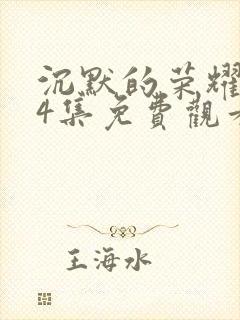 沉默的荣耀
4集免費觀
王海水